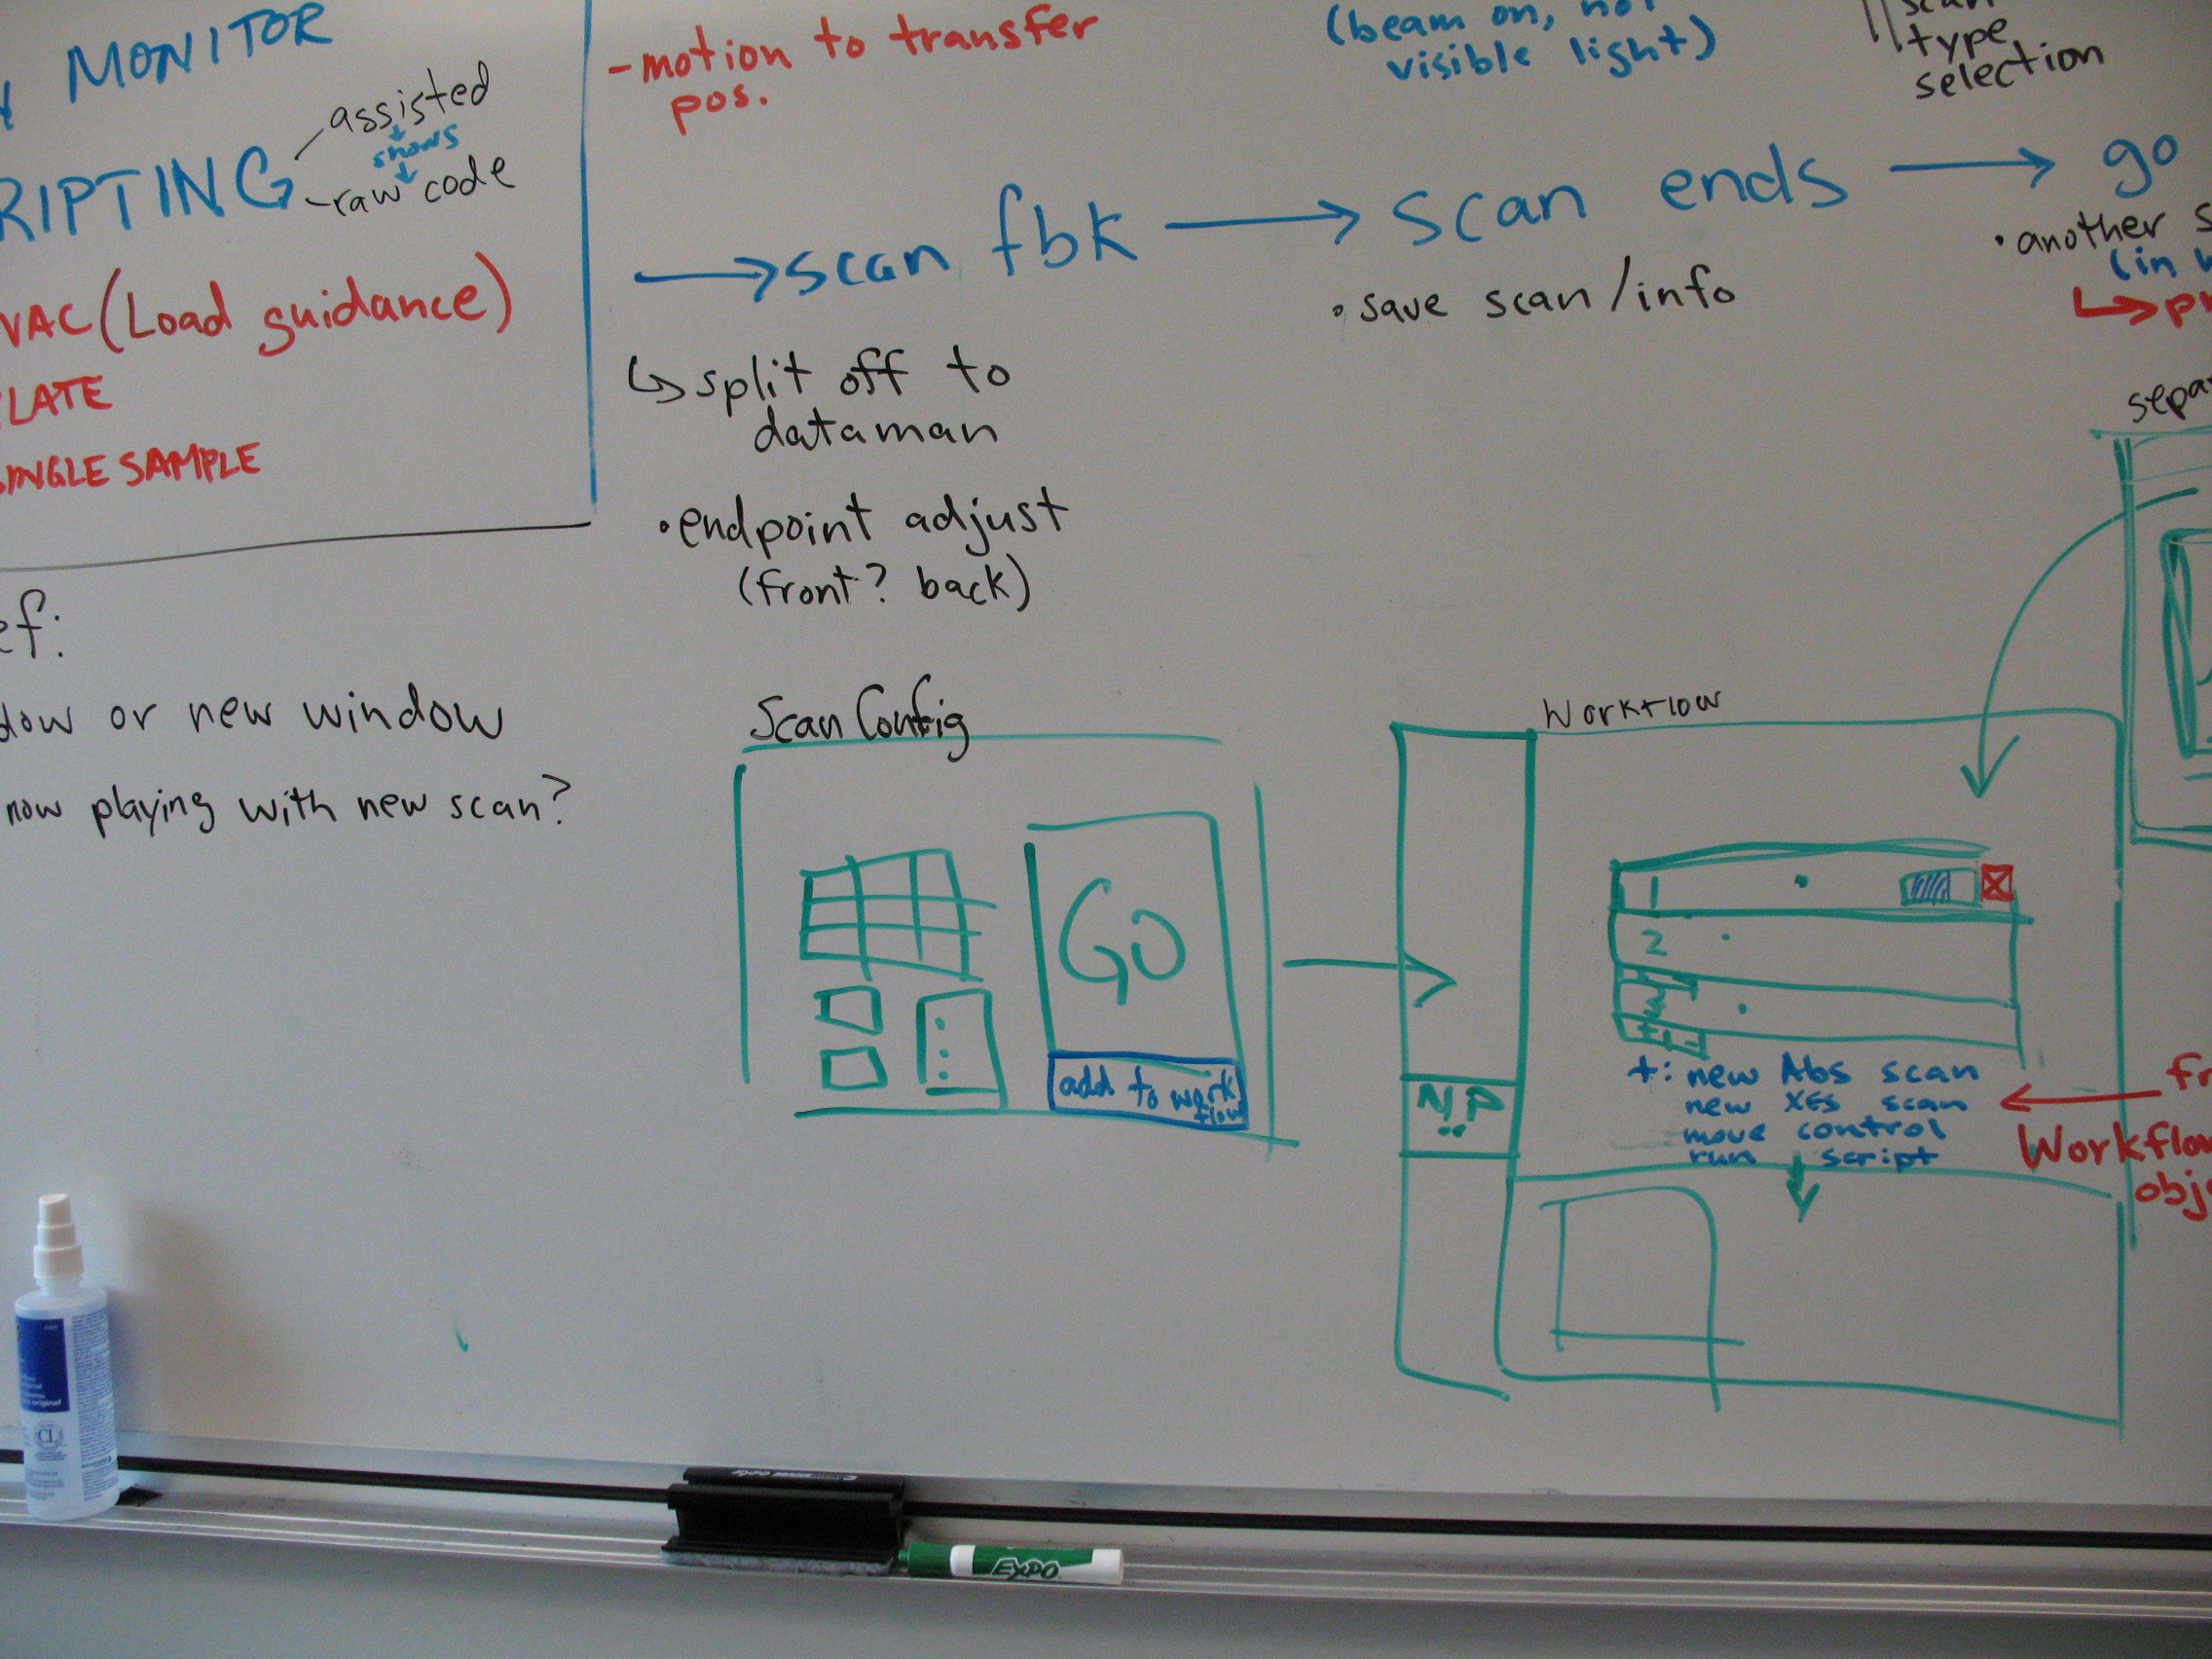 MONITOR
assisted
shows
raw code
RIPTING
VAC (Load guidance)
LATE
INGLE SAMPLE
ef:
dow or new window
now playing with new scan?
-motion to transfer
pos.
(beam on, not
visible light)
scan
type
selection
→ scan fbk → scan ends → go
↳ split off to
dataman
• endpoint adjust
(front? back)
• save scan/info
• another s
(in
↳
separ
Scan Config
GO
add to work
flow
Workflow
N.P.
1
2
3
+
+: new Abs scan
new XES scan
move control
run script
fr
Workflow
obj
CL
original
EXPO